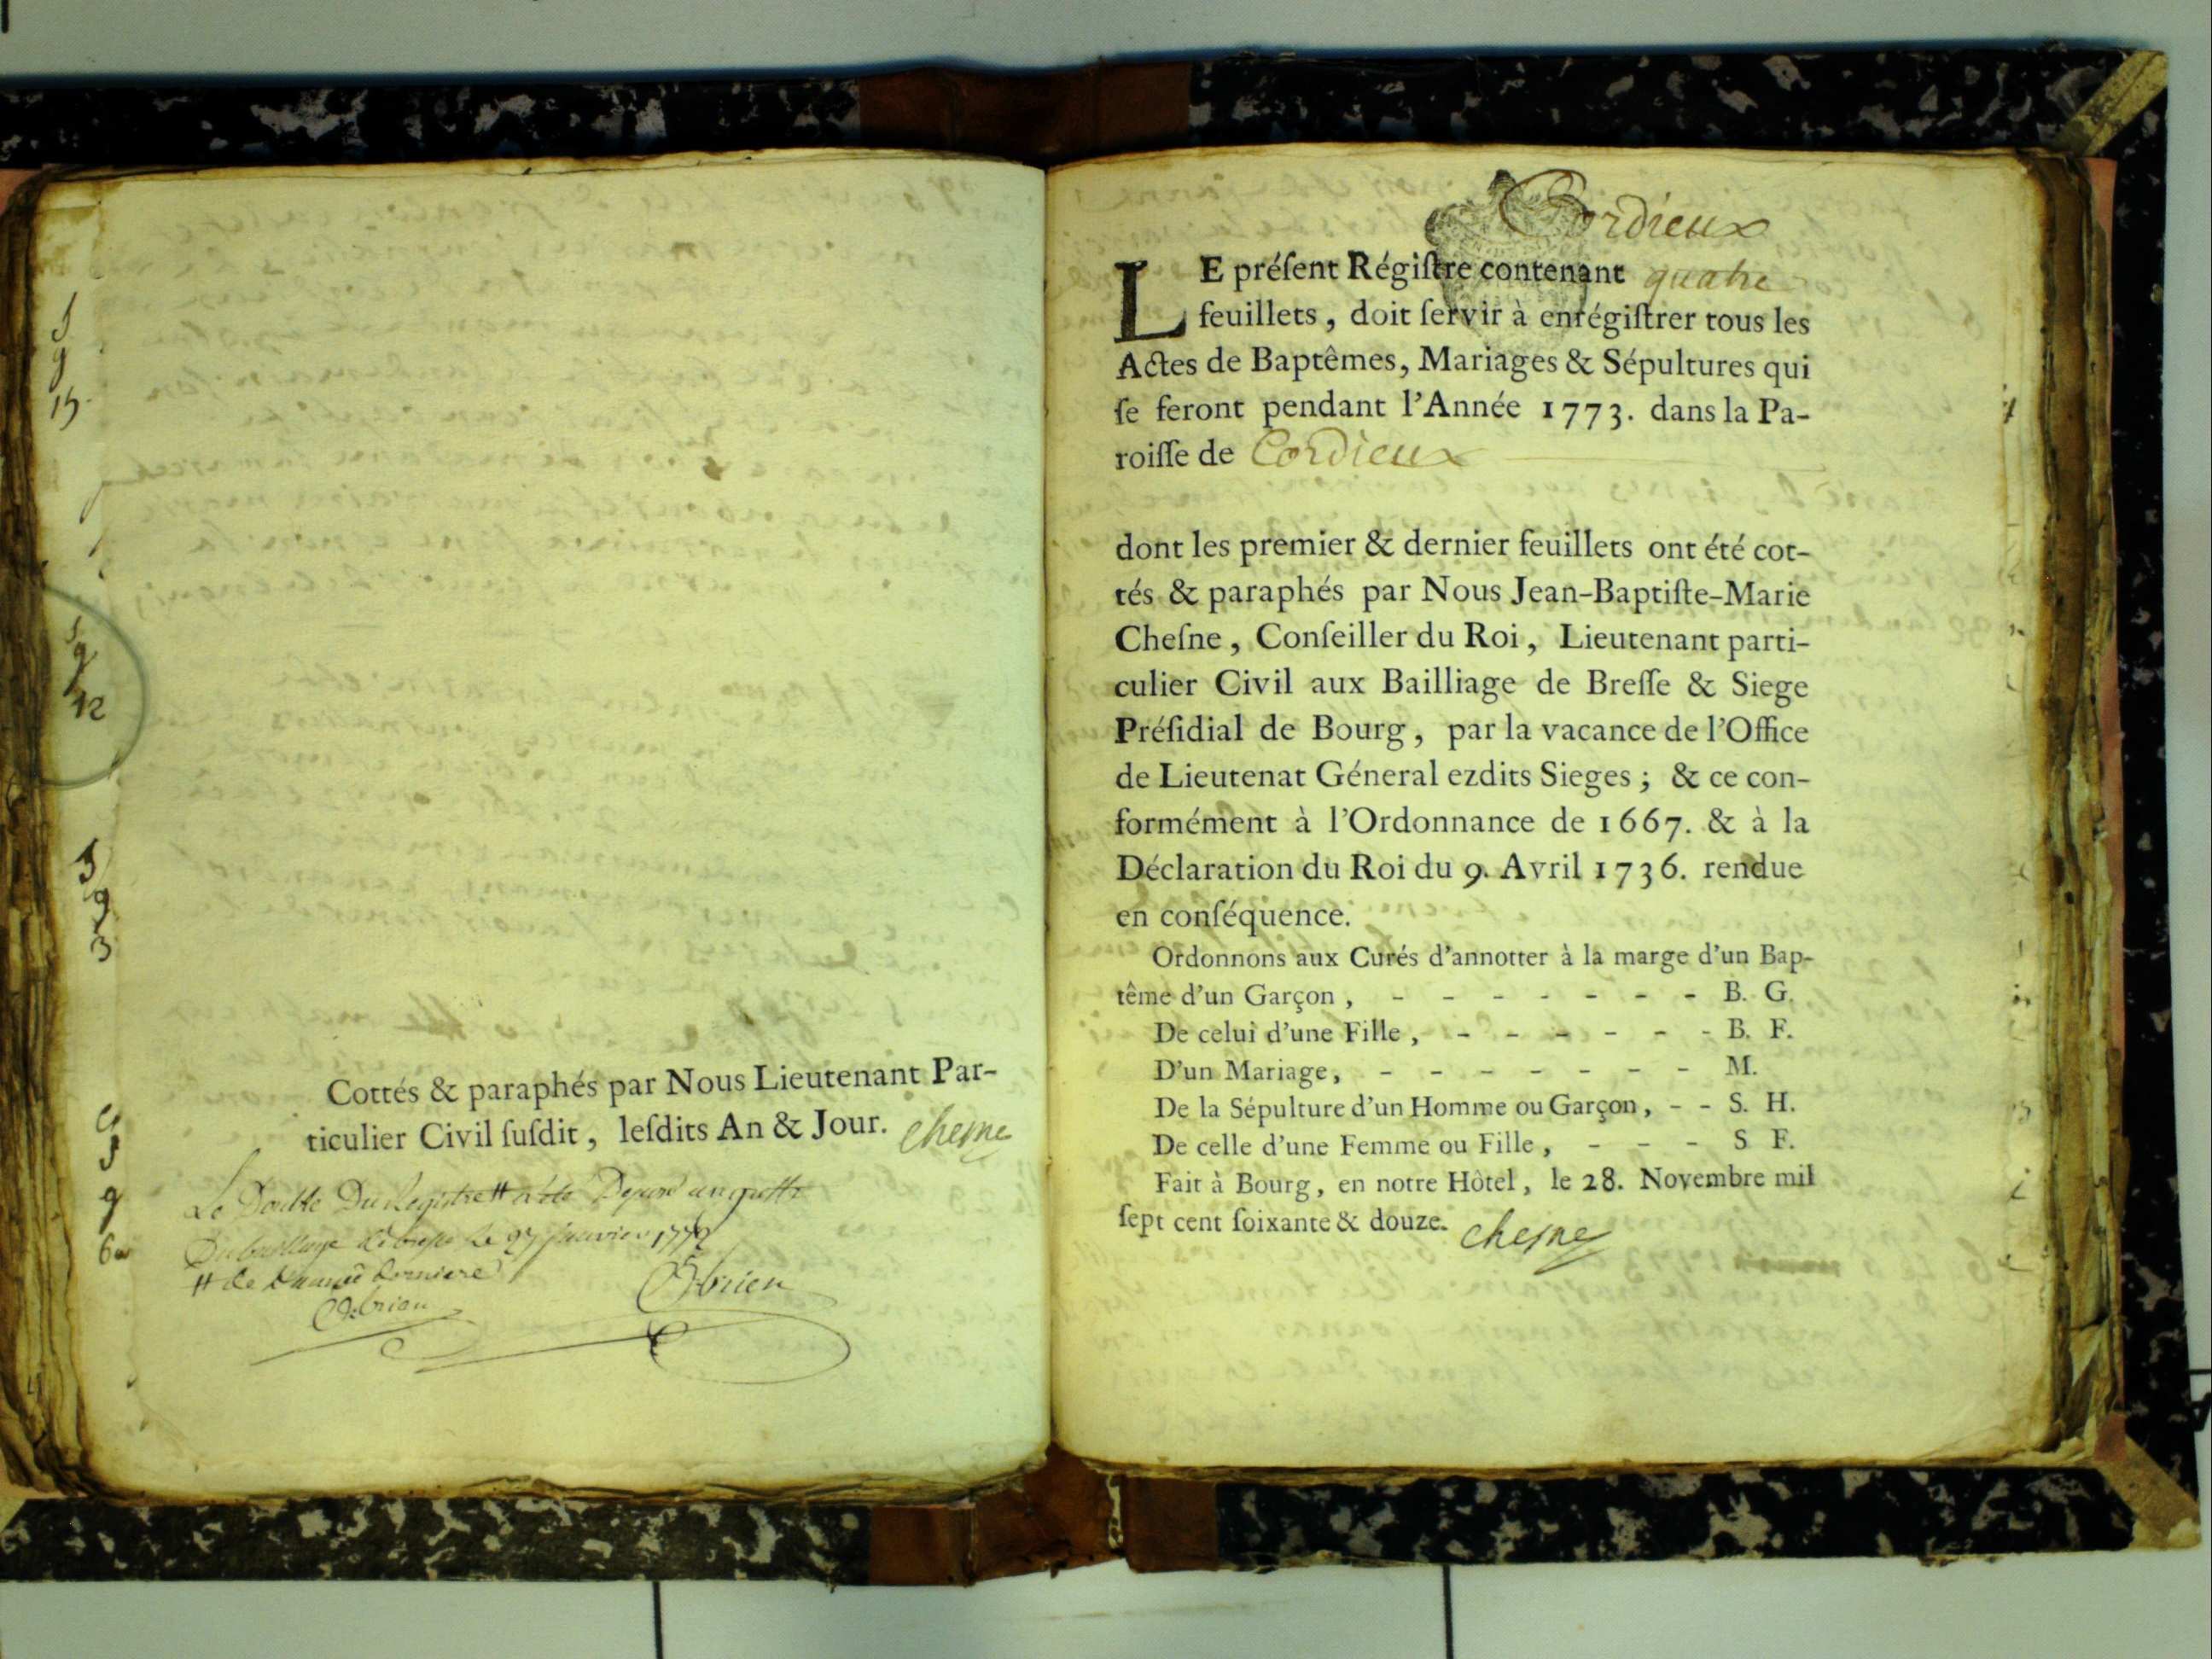 Cottés & paraphés par Nous Lieutenant Par-
ticulier Civil ſuſdit, leſdits An & Jour. Chesne
Le Double Du Registre # a été Déposé au greffe
Du bailliage de bresse le 27 janvier 1772
# de L'année derniere
Obrien
Obrien
Cordieux
LE préſent Régiſtre contenant quatre
feuillets, doit ſervir à enrégiſtrer tous les
Actes de Baptêmes, Mariages & Sépultures qui
ſe feront pendant l'Année 1773. dans la Pa-
roiſſe de Cordieux
dont les premier & dernier feuillets ont été cot-
tés & paraphés par Nous Jean-Baptiſte-Marie
Cheſne, Conſeiller du Roi, Lieutenant parti-
culier Civil aux Bailliage de Breſſe & Siege
Préſidial de Bourg, par la vacance de l'Office
de Lieutenat Géneral ezdits Sieges; & ce con-
formément à l'Ordonnance de 1667. & à la
Déclaration du Roi du 9. Avril 1736. rendue
en conſéquence.
Ordonnons aux Curés d'annotter à la marge d'un Bap-
tême d'un Garçon, - - - - - - - B. G.
De celui d'une Fille, - - - - - - B. F.
D'un Mariage, - - - - - - - M.
De la Sépulture d'un Homme ou Garçon, - - S. H.
De celle d'une Femme ou Fille, - - - S F.
Fait à Bourg, en notre Hôtel, le 28. Novembre mil
ſept cent ſoixante & douze. Chesne